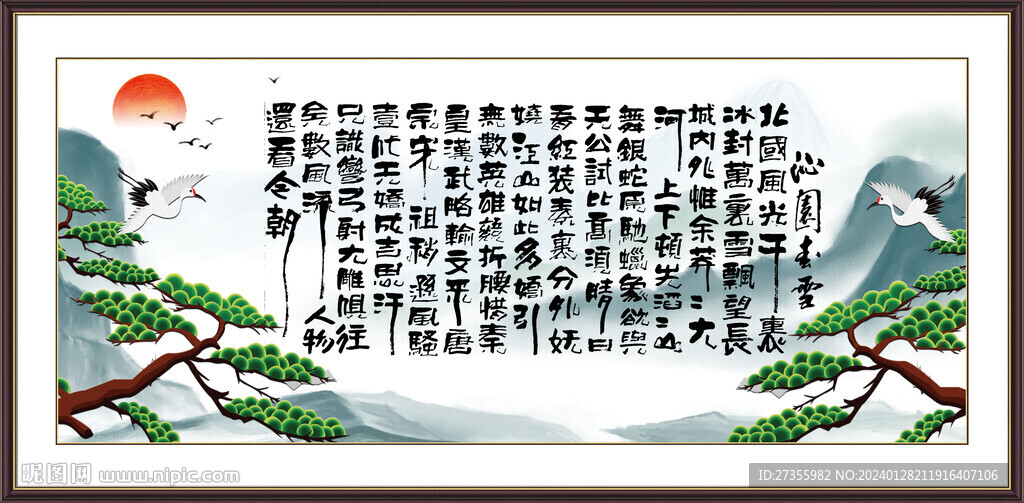 沁園春雪
北國風光千裏
冰封萬裏雪飄望長
城内外惟余莽〻大
河上下頓失滔〻山
舞銀蛇原馳蠟象欲與
天公試比高須晴日
看紅裝素裹分外妖
嬈江山如此多嬌引
無數英雄競折腰惜秦
皇漢武略輸文采唐
宗宋祖稍遜風騷
壹代天嬌成吉思汗
只識彎弓射大雕俱往
矣數風流人物
還看今朝
昵图网 www.nipic.com
ID:27355982 NO:20240128211916407106